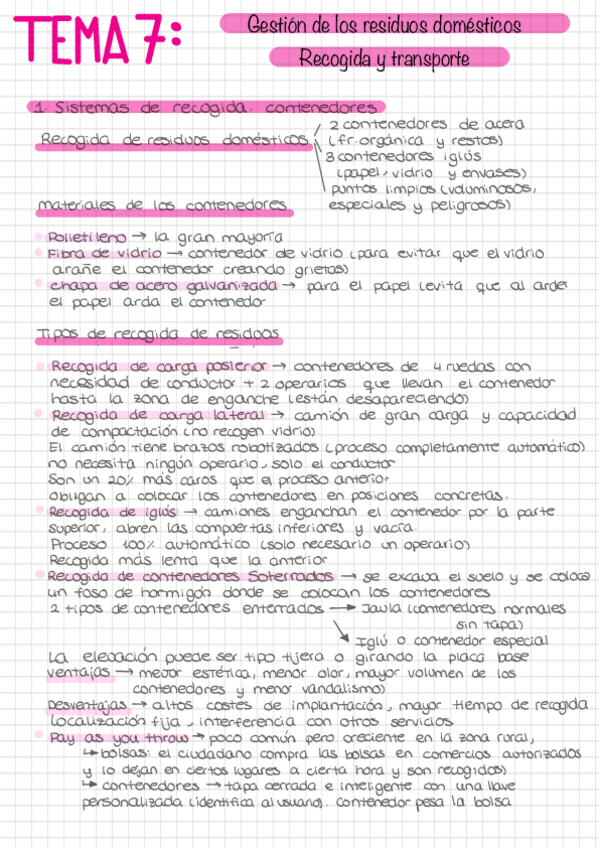 TEMA 7:
Gestión de los residuos domésticos
Recogida y transporte
1. Sistemas de recogida. contenedores
Recogida de residuos domésticos
2 contenedores de acera
(fr. orgánica y restos)
3 contenedores iglús
(papel, vidrio y envases)
puntos limpios (voluminosos,
especiales y peligrosos)
Materiales de los contenedores
Polietileno → la gran mayoría
Fibra de vidrio → contenedor de vidrio (para evitar que el vidrio
arañe el contenedor creando grietas)
chapa de acero galvanizada → para el papel (evita que al arder
el papel arda el contenedor
Tipos de recogida de residuos
Recogida de carga posterior → contenedores de 4 ruedas con
necesidad de conductor + 2 operarios que llevan el contenedor
hasta la zona de enganche (están desapareciendo)
Recogida de carga lateral → camión de gran carga y capacidad
de compactación (no recogen vidrio)
El camión tiene brazos robotizados (proceso completamente automático)
no necesita ningún operario, solo el conductor
Son un 20% más caros que el proceso anterior
Obligan a colocar los contenedores en posiciones concretas.
Recogida de iglús → camiones enganchan el contenedor por la parte
superior, abren las compuertas inferiores y vacía.
Proceso 100% automático (solo necesario un operario)
Recogida más lenta que la anterior
Recogida de contenedores Soterrados → se excava el suelo y se coloca
un foso de hormigón donde se colocan los contenedores
2 tipos de contenedores enterrados → Jaula (contenedores normales
sin tapa)
Iglú o contenedor especial
La elevación puede ser tipo tijera o girando la placa base
ventajas → mejor estética, menor olor, mayor volumen de los
contenedores y menor vandalismo)
Desventajas → altos costes de implantación, mayor tiempo de recogida
localización fija, interferencia con otros servicios
Pay as you throw → poco común pero creciente en la zona rural,
↳ bolsas: el ciudadano compra las bolsas en comercios autorizados
y lo dejan en ciertos lugares a cierta hora y son recogidos)
↳ contenedores → tapa cerrada e inteligente con una llave
personalizada (identifica al usuario). contenedor pesa la bolsa